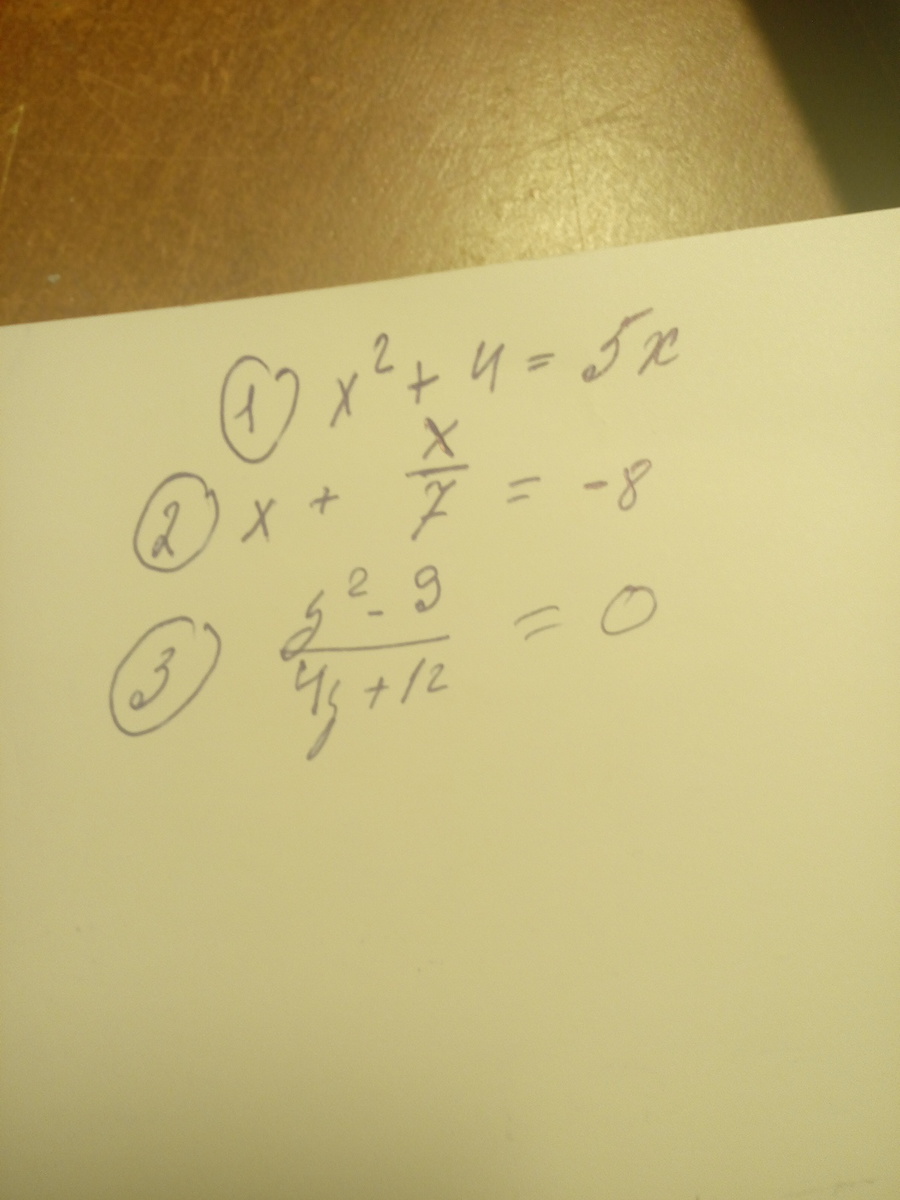 ① x² + 4 = 5x
② x + x/7 = -8
③ (y² - 9)/(4y + 12) = 0